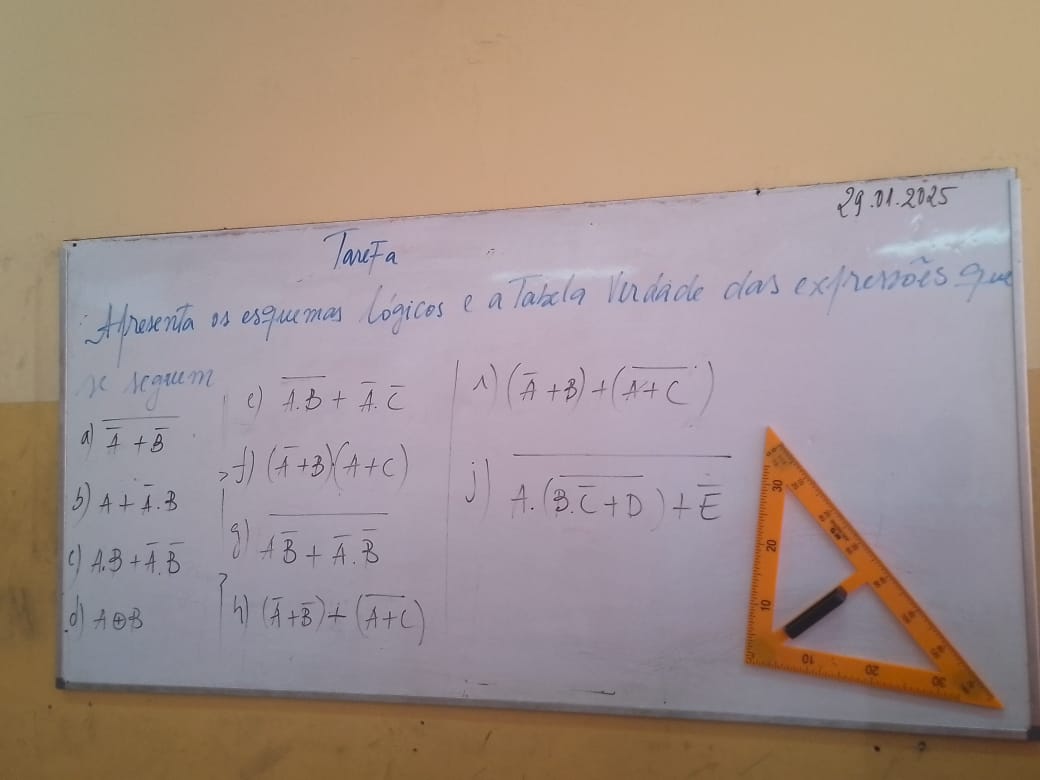 29.01.2025
Tarefa
Apresenta os esquemas lógicos e a Tabela Verdade das expressões que
se seguem
a) \overline{\overline{A} + \overline{B}}
b) A + \overline{A}.B
c) A.B + \overline{A}.\overline{B}
d) A⊕B
e) \overline{A.B} + \overline{A}.\overline{C}
f) (\overline{A}+B)(A+C)
g) \overline{A\overline{B} + \overline{A}.\overline{B}}
h) (\overline{A}+\overline{B}) + (\overline{A+C})
i) (\overline{A}+B)+(\overline{A+C})
j) \overline{A.(\overline{B.\overline{C}+D})+\overline{E}}
30
20
10
10
20
30